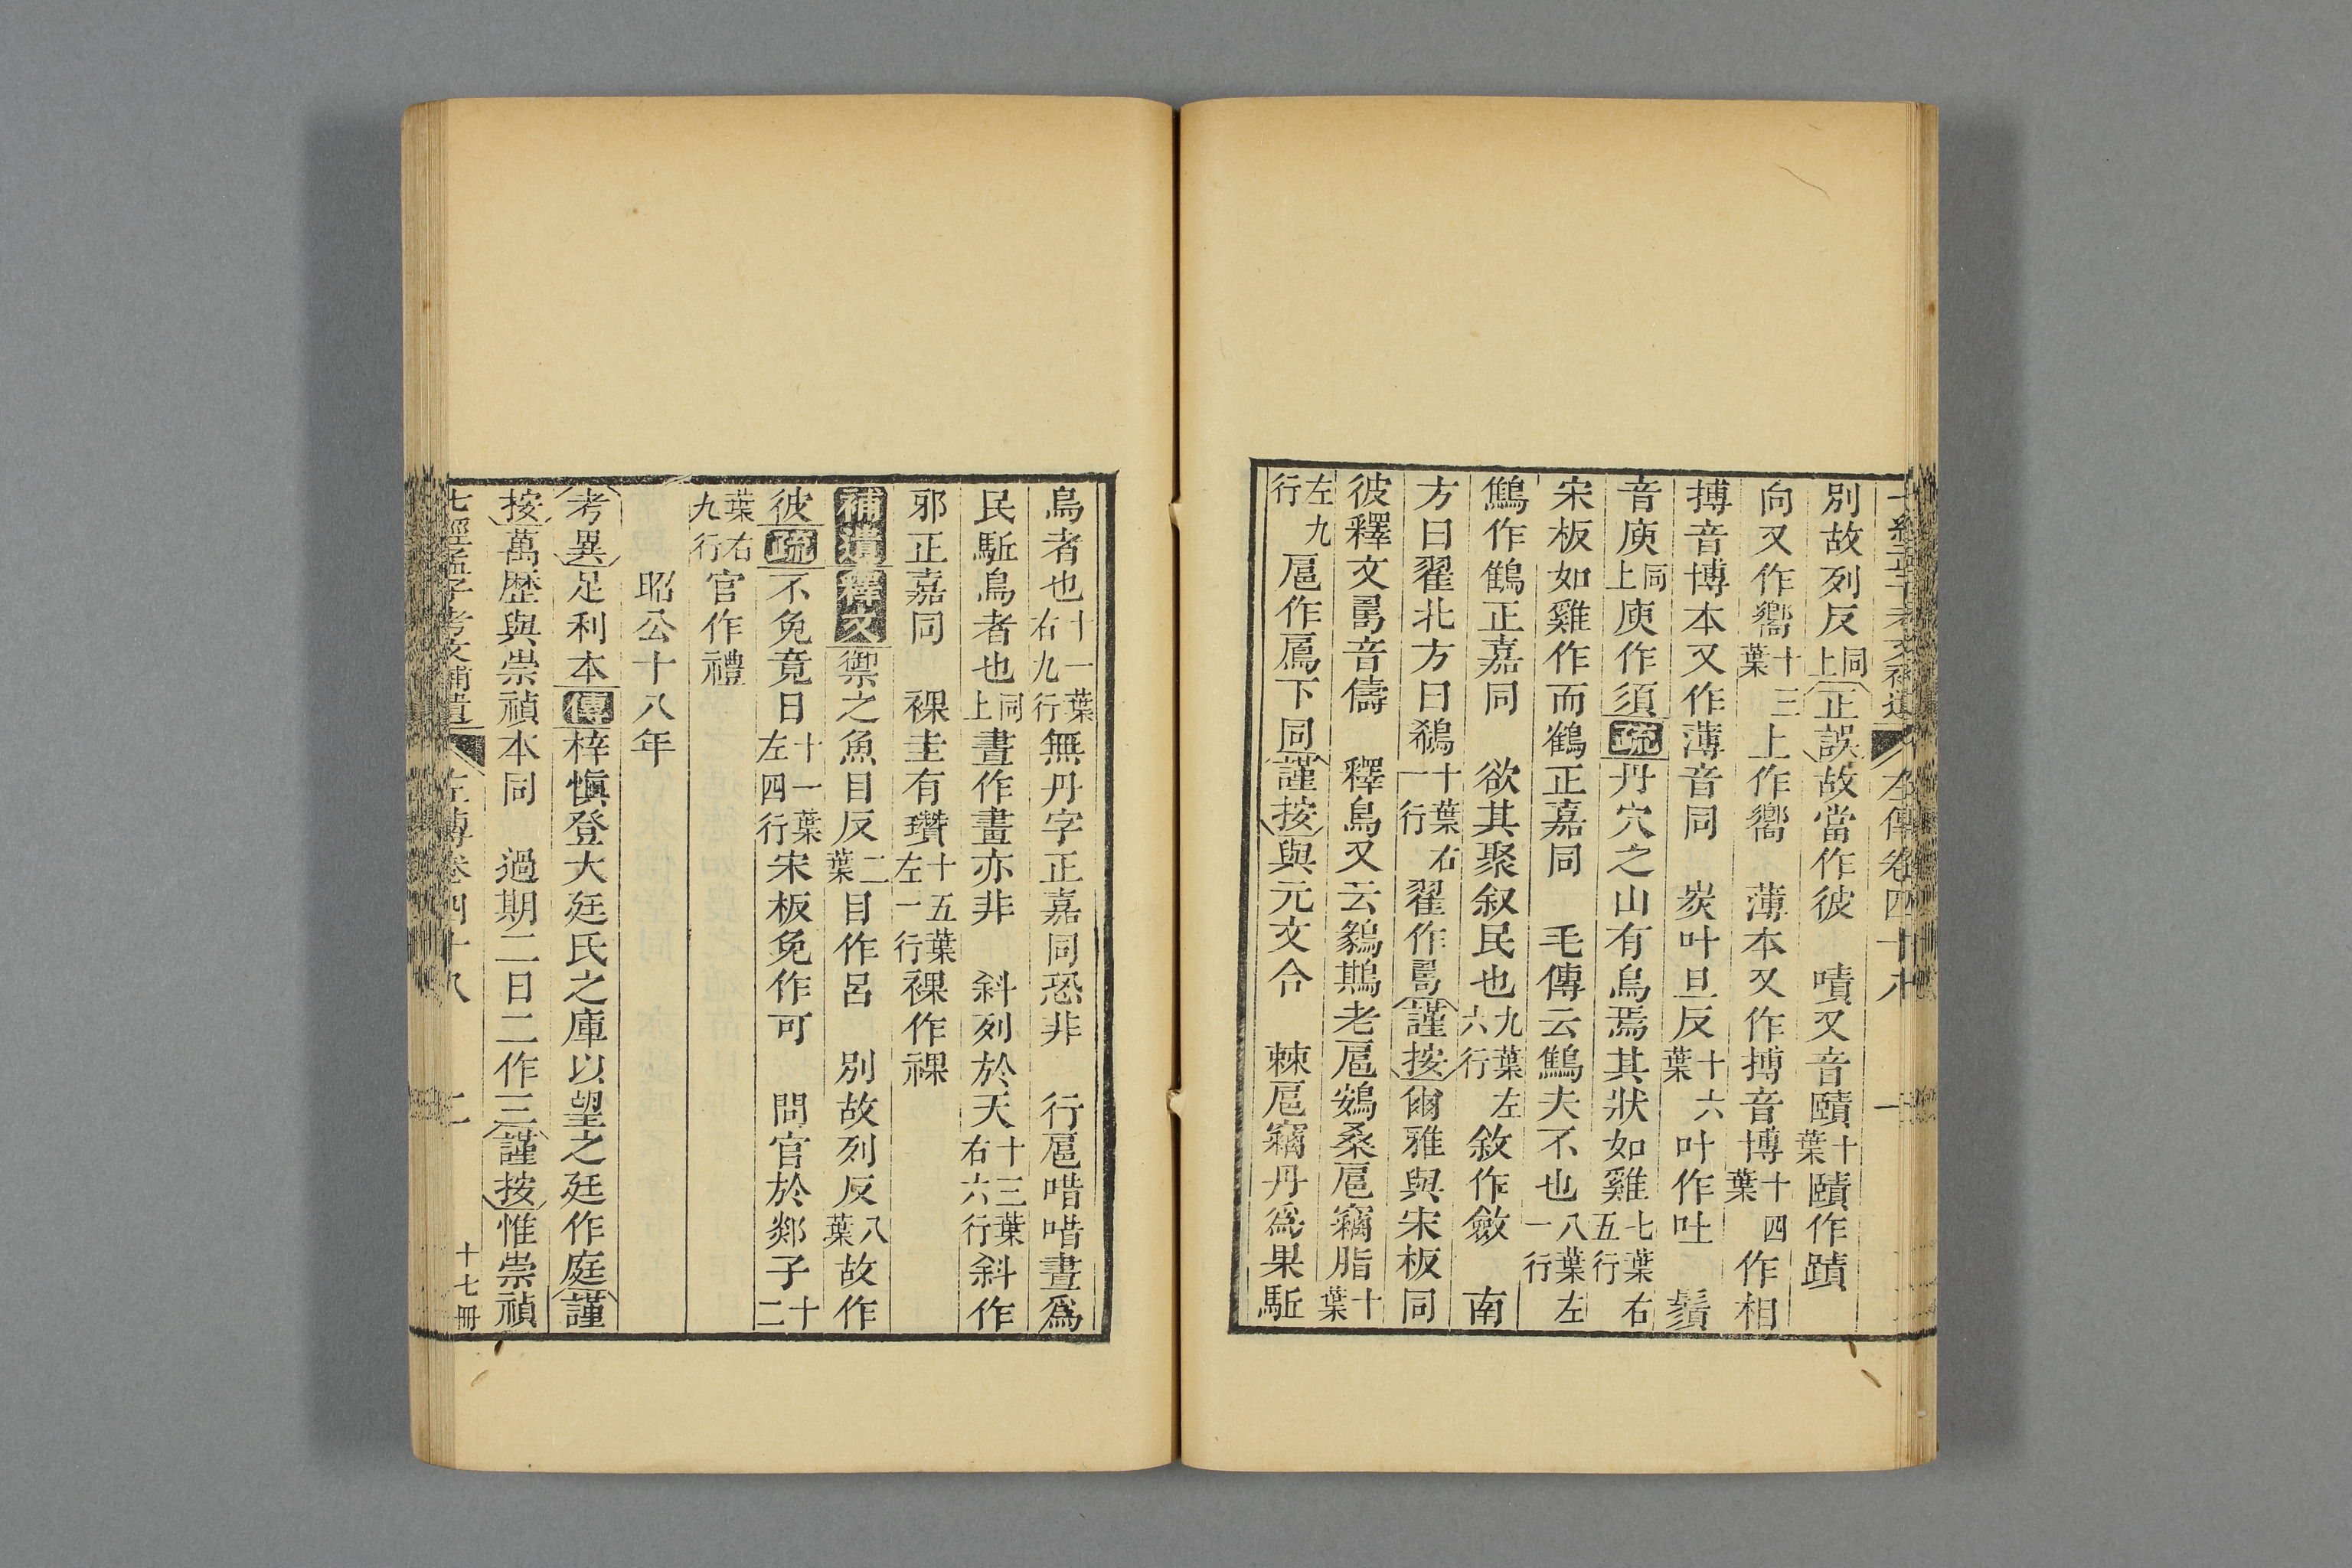 七經孟子考文補遺 左傳卷四十八 一
別故列反同上正誤故當作彼 嘖又音賾十葉賾作蹟
向又作嚮十三葉上作嚮 薄本又作搏音博十四葉作相
搏音博本又作薄音同 炭叶旦反十六葉叶作吐 鬚
音庾同上庾作須疏丹穴之山有鳥焉其狀如雞七葉右五行
宋板如雞作而鶴正嘉同 毛傳云鷦夫不也八葉左一行
鷦作鶴正嘉同 欲其聚叙民也九葉左六行敘作斂 南
方曰翟北方曰鵗十葉右一行翟作𠷎謹按爾雅與宋板同
彼釋文𠷎音儔 釋鳥又云鶨鶀老扈鴳桑扈竊脂十葉
左九行扈作鳸下同謹按與元文合 棘扈竊丹爲果駈
鳥者也十一葉右九行無丹字正嘉同恐非 行扈唶唶晝爲
民駈鳥者也同上晝作畫亦非 斜列於天十三葉右六行斜作
邪正嘉同 裸圭有瓚十五葉左一行裸作祼
補遺釋文禦之魚目反二葉目作呂 別故列反八葉故作
彼疏不免竟日十一葉左四行宋板免作可 問官於郯子十二
葉右九行官作禮
昭公十八年
考異足利本傳梓愼登大廷氏之庫以望之廷作庭謹
按萬歴與崇禎本同 過期二日二作三謹按惟崇禎
七經孟子考文補遺 左傳卷四十八 二 十七冊